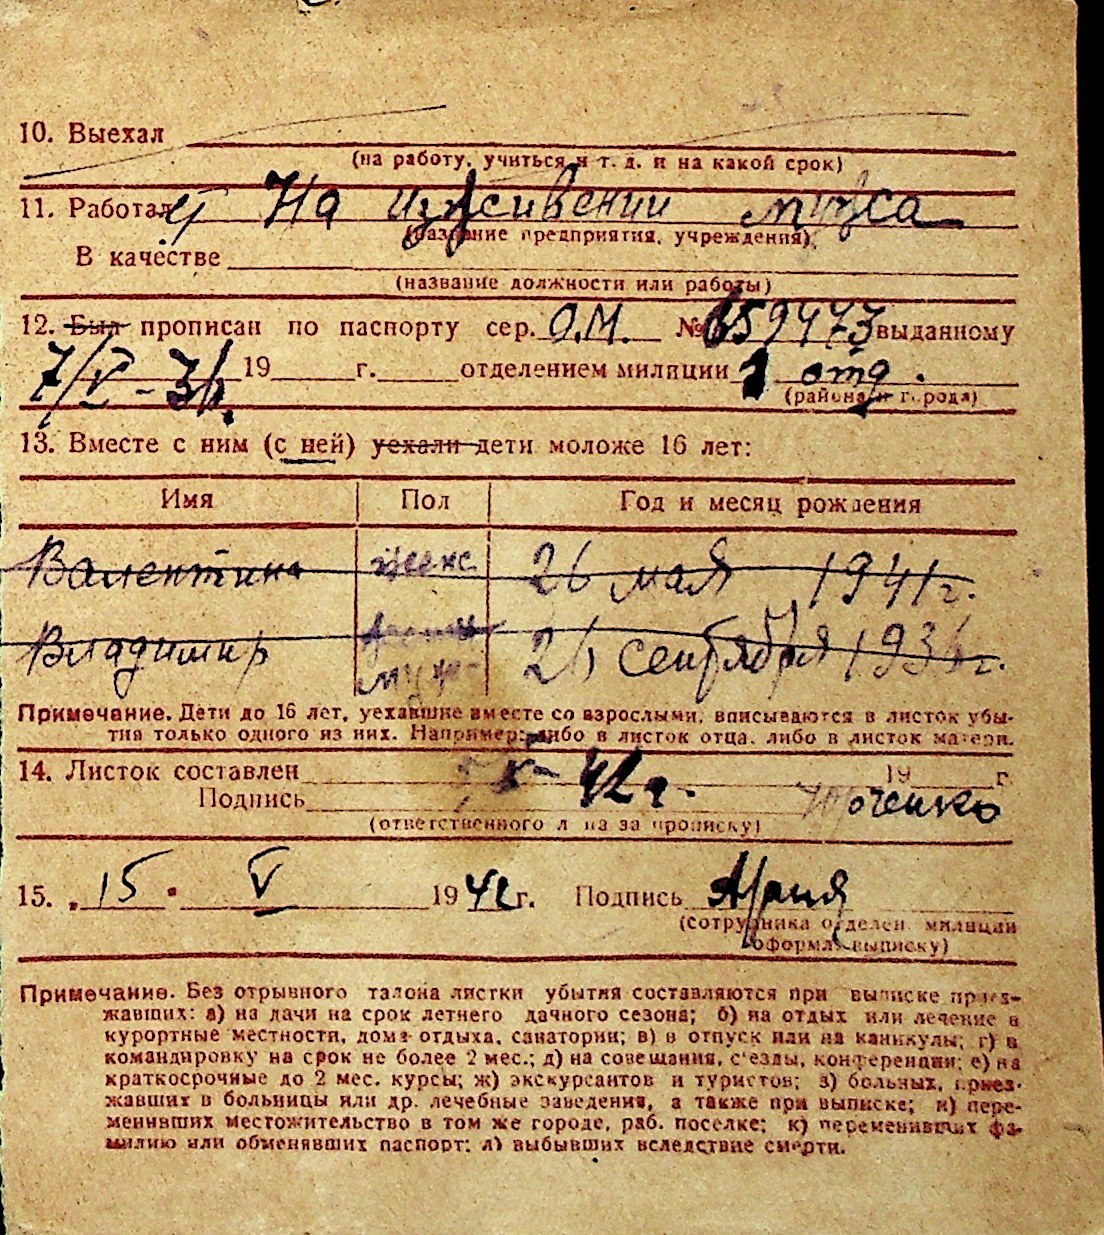 10. Выехал
(на работу, учиться и т. д. и на какой срок)
11. Работает На иждивении мужа
(название предприятия, учреждения)
В качестве
(название должности или работы)
12. Был прописан по паспорту сер. О.М. № 659473 выданному
7/V-36. 19 г. отделением милиции 1 отд.
(района и города)
13. Вместе с ним (с ней) уехали дети моложе 16 лет:
Имя Пол Год и месяц рождения
Валентина женс. 26 мая 1941г.
Владимир 26 сентября 1936г.
муж
Примечание. Дети до 16 лет, уехавшие вместе со взрослыми, вписываются в листок убы-
тия только одного из них. Например: либо в листок отца, либо в листок матери.
14. Листок составлен V - 42 г. 19 г.
Подпись
(ответственного лица за прописку)
15. 15 . V 1942 г. Подпись
(сотрудника отделен. милиции
оформл. выписку)
Примечание. Без отрывного талона листки убытия составляются при выписке приез-
жавших: а) на дачи на срок летнего дачного сезона; б) на отдых или лечение в
курортные местности, дома отдыха, санатории; в) в отпуск или на каникулы; г) в
командировку на срок не более 2 мес.; д) на совещания, с'езды, конференции; е) на
краткосрочные до 2 мес. курсы; ж) экскурсантов и туристов; з) больных, приез-
жавших в больницы или др. лечебные заведения, а также при выписке; и) пере-
менивших местожительство в том же городе, раб. поселке; к) переменивших фа-
милию или обменявших паспорт; л) выбывших вследствие смерти.